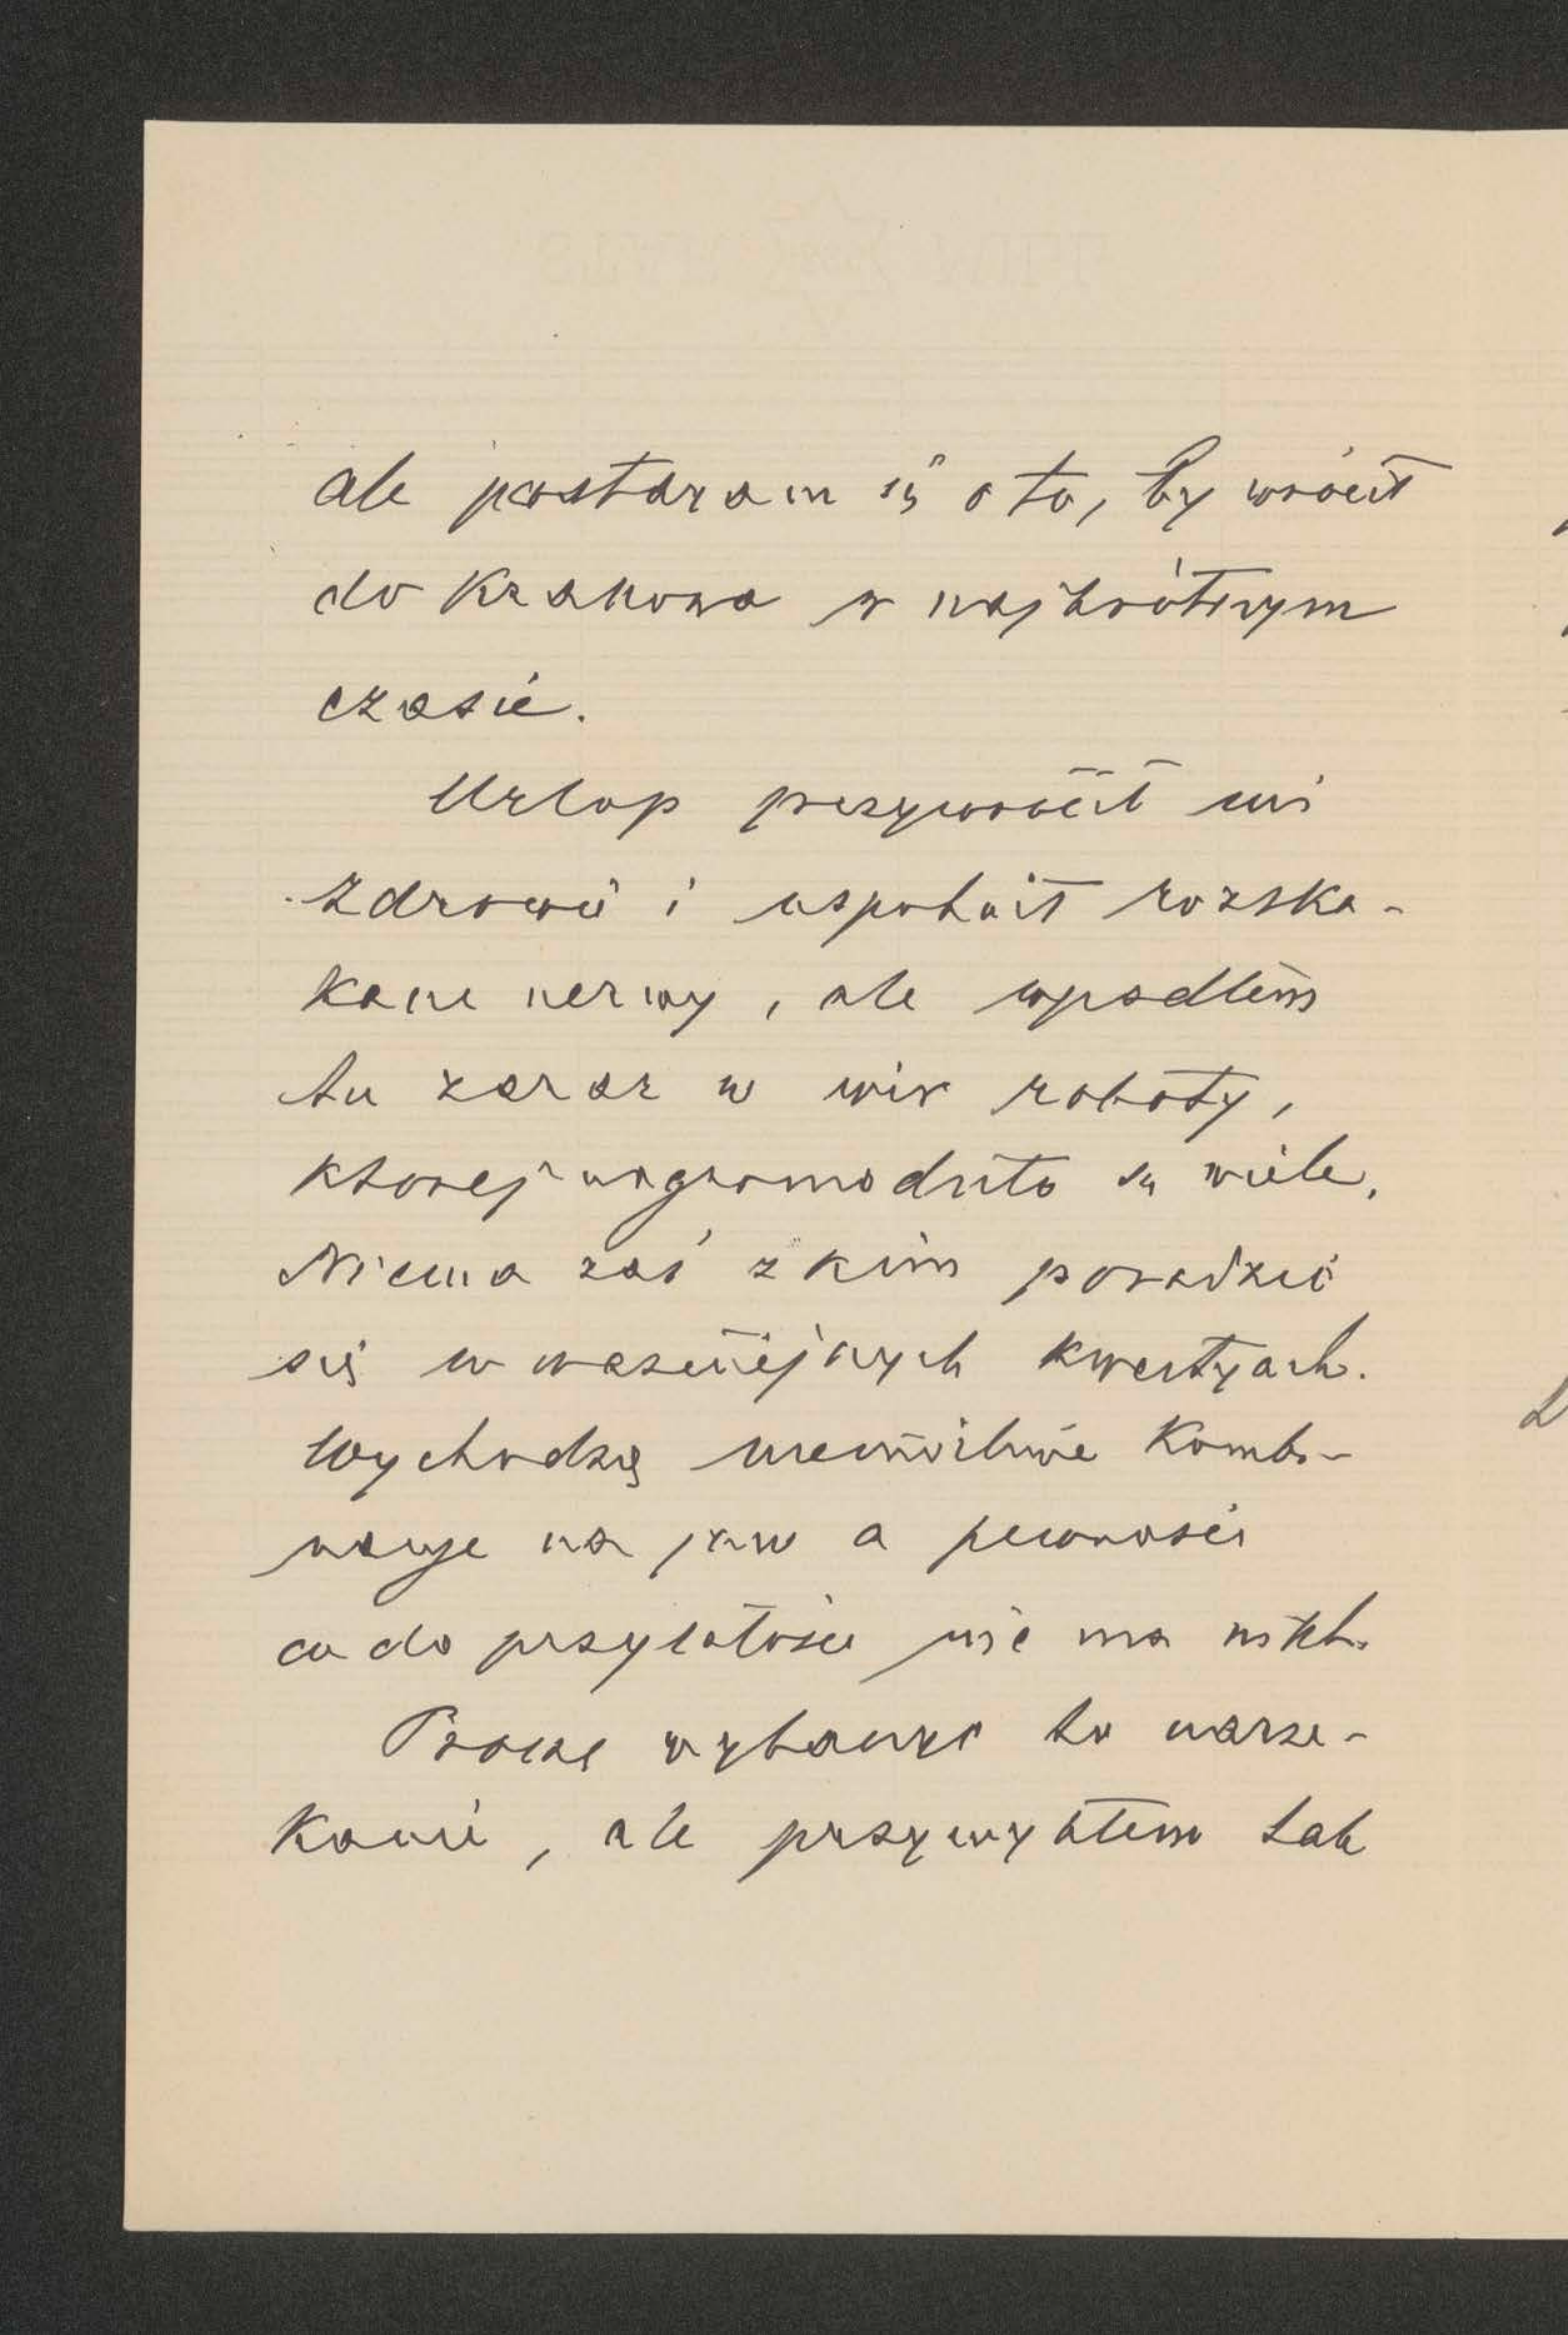 ale postaram się o to, by wrócił
do Krakowa w najkrótszym
czasie.
Urlop przywrócił mi
zdrowie i uspokoił rozska-
kane nerwy, ale wpadłem
tu zaraz w wir roboty,
której nagromadziło się wiele.
Niema zaś z kim poradzić
się w ważniejszych kwestyach.
Wychodzą niemożliwe kombi-
nacye na jaw a pewności
co do przyszłości nie ma nikt.
Proszę wybaczyć to narze-
kanie, ale przywykłem tak